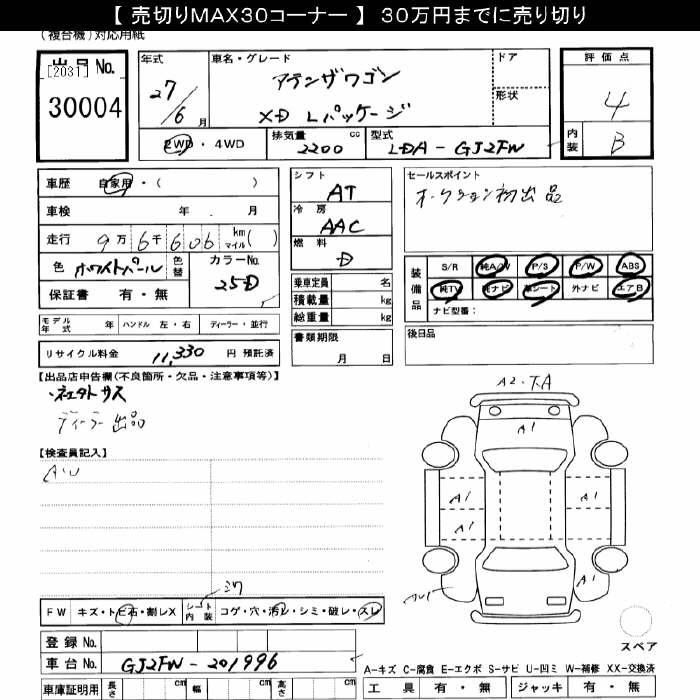 【 売切りMAX30コーナー 】 30万円までに売り切り
(複合機)対応用紙
出品 No.
[2031]
30004
年式
27/6 月
車名・グレード
アテンザワゴン
XD Lパッケージ
ドア
形状
評価点
4
内装
B
2WD・4WD
排気量 2200 cc
型式 LDA-GJ2FW
車歴 自家用・( )
車検 年 . 月
走行 9万6千606 km マイル( )
色 ホワイトパール 色替
カラーNo. 25D
保証書 有・無
シフト
AT
冷房
AAC
燃料
D
乗車定員 名
積載量 kg
総重量 kg
書類期限
月 日
セールスポイント
オークション初出品
装備品
S/R 純A/W P/S P/W ABS
純TV 純ナビ 革シート 外ナビ エアB
ナビ型番:
後日品
モデル年式 年 ハンドル 左・右 ディーラー・並行
リサイクル料金 11,330 円 預託済
【出品店申告欄(不良箇所・欠品・注意事項等)】
ディーラー出品
【検査員記入】
A・U
A2・TA
A1
A1
A1
A1
A1
FW キズ・トビ石・割レX シート内装 コゲ・穴・汚レ・シミ・破レ・スレ
登録 No.
車台 No. GJ2FW-201996
車庫証明用 長さ cm 幅 cm 高さ cm
スペア
A-キズ C-腐食 E-エクボ S-サビ U-凹ミ W-補修 XX-交換済
工具 有・無 ジャッキ 有・無